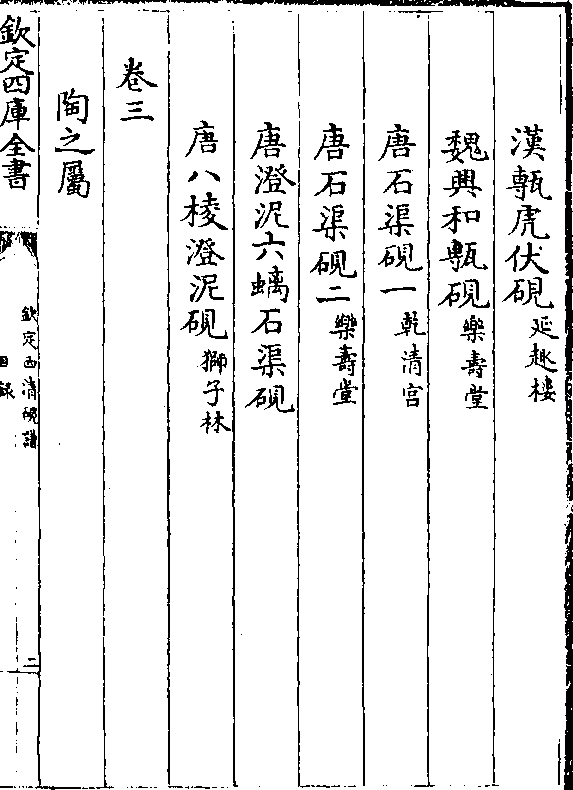 漢甎虎伏硯 延趣樓
魏興和甎硯 樂壽堂
唐石渠硯一 乾清宮
唐石渠硯二 樂壽堂
唐澄泥六螭石渠硯
唐八棱澄泥硯 獅子林
卷三
陶之屬
欽定四庫全書
欽定西清硯譜
目錄
二